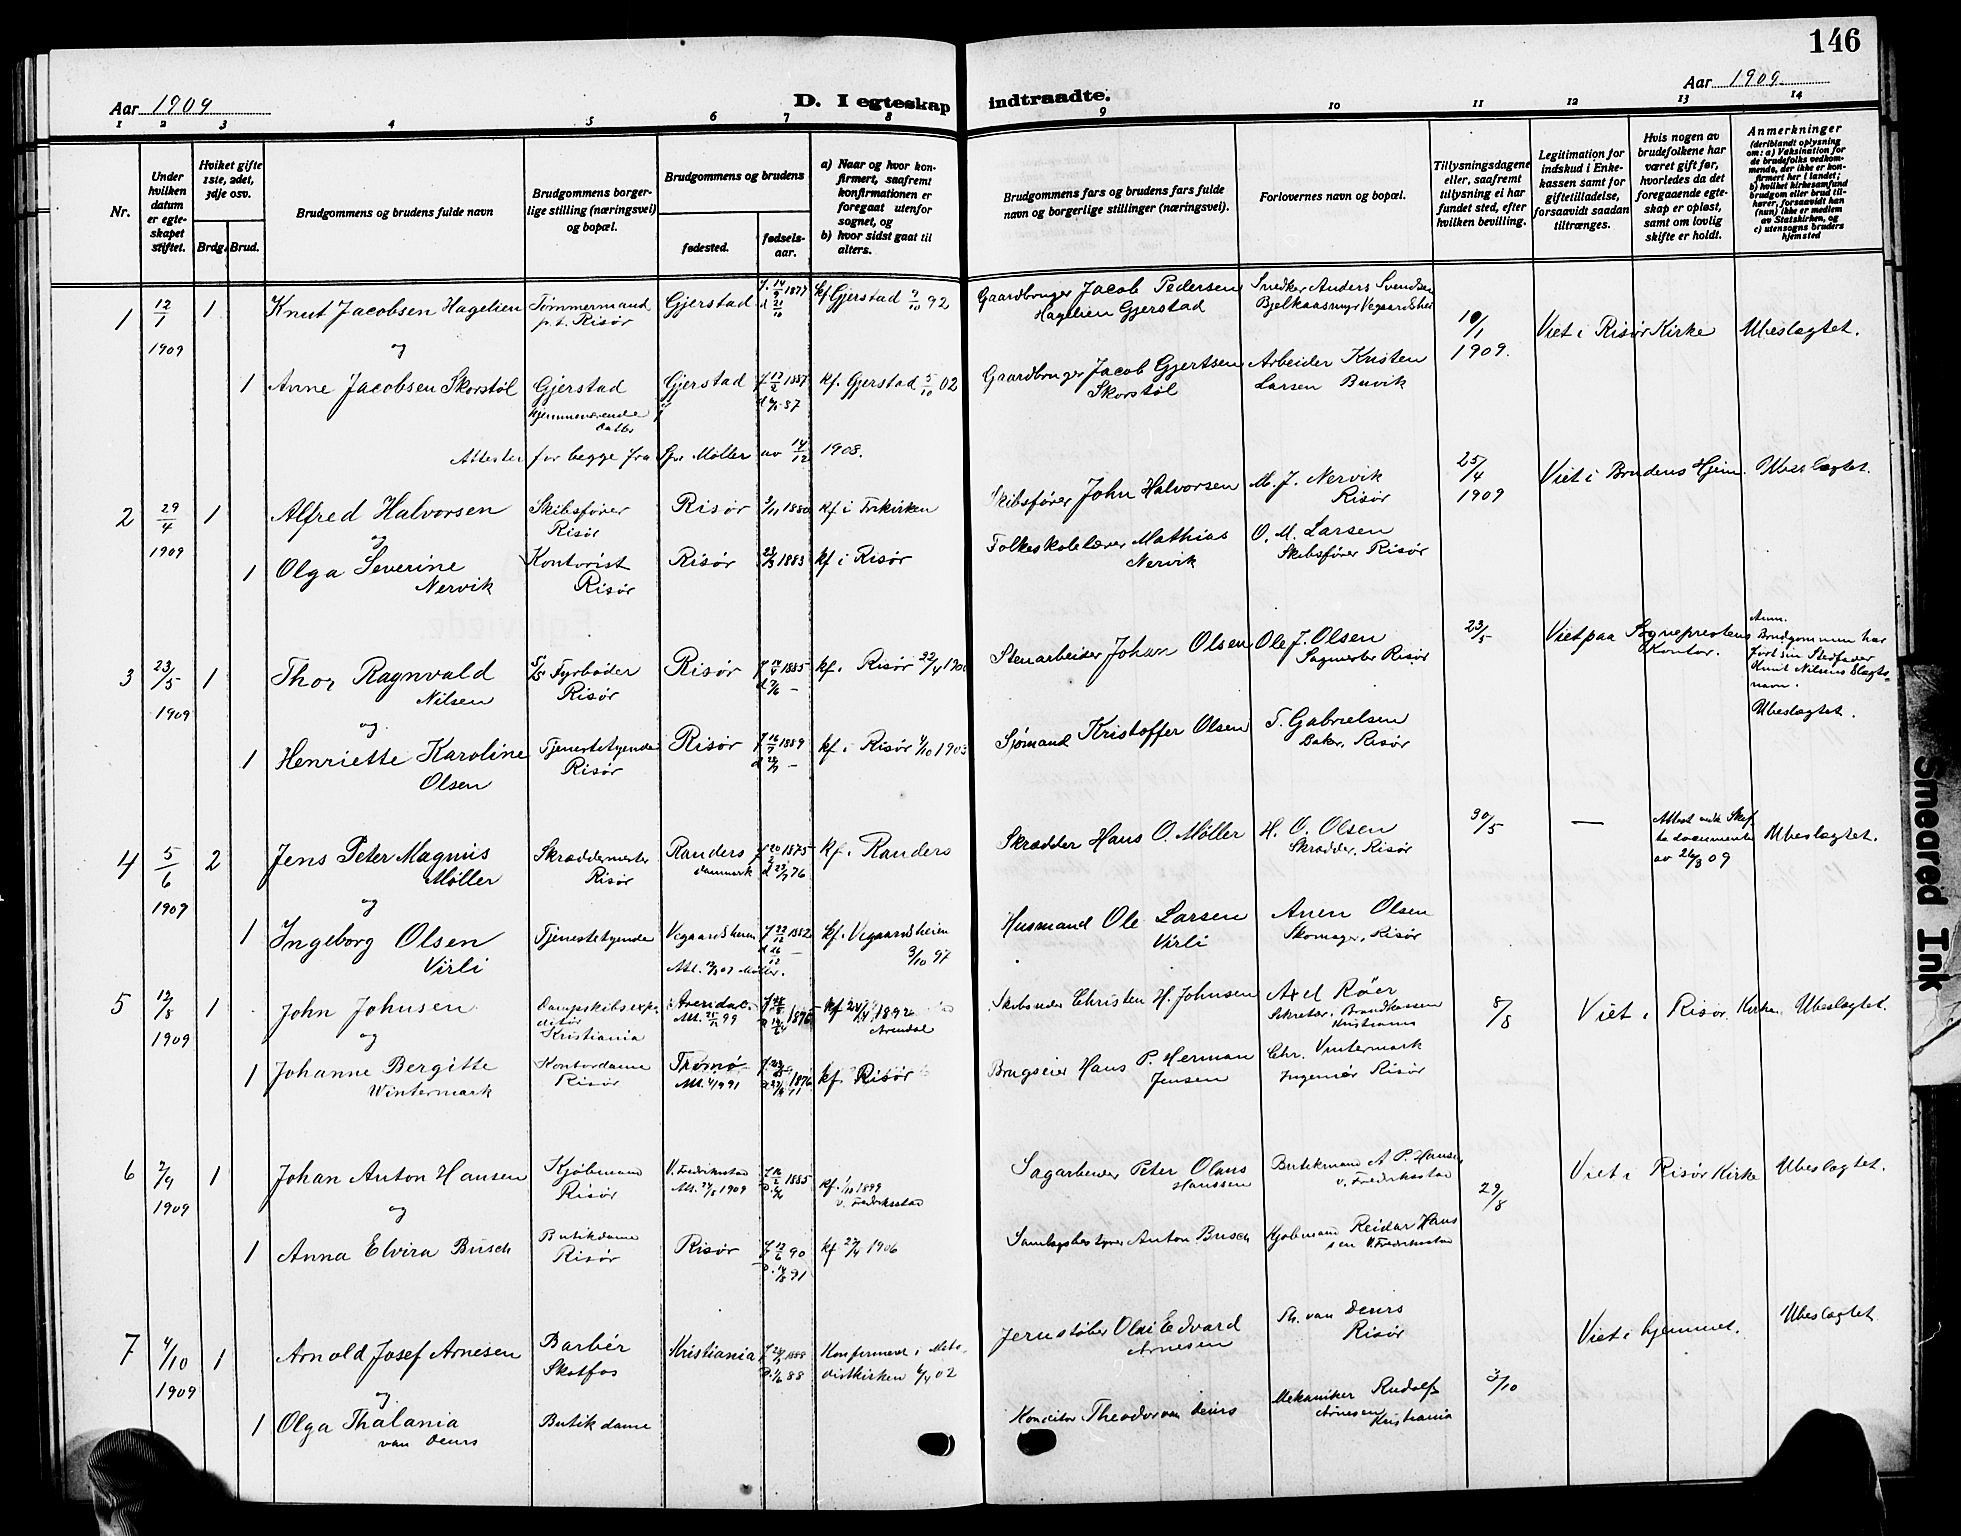 146
Aar 1909
D. I egteskap indtraadte.
Aar 1909
1 2 3 4 5 6 7 8 9 10 11 12 13 14
Nr.
Under hvilken datum er egteskapet stiftet.
Hvilket gifte 1ste, 2det, 3dje osv.
Brdg. Brud.
Brudgommens og brudens fulde navn
Brudgommens borgerlige stilling (næringsvei) og bopæl.
Brudgommens og brudens
fødested.
fødselsaar.
a) Naar og hvor konfirmert, saafremt konfirmationen er foregaat utenfor sognet, og
b) hvor sidst gaat til alters.
Brudgommens fars og brudens fars fulde navn og borgerlige stillinger (næringsvei).
Forlovernes navn og bopæl.
Tillysningsdagene eller, saafremt tillysning ei har fundet sted, efter hvilken bevilling.
Legitimation for indskud i Enkekassen samt for giftetilladelse, forsaavidt saadan tiltrænges.
Hvis nogen av brudefolkene har været gift før, hvorledes da det foregaaende egteskap er opløst, samt om lovlig skifte er holdt.
Anmerkninger (deriblandt oplysning om: a) Vaksination for de brudefolks vedkommende, der ikke er konfirmert her i landet; b) hvilket kirkesamfund brudgom eller brud tilhører, forsaavidt han (hun) ikke er medlem av Statskirken, og c) utensogns bruders hjemsted
1 12/1 1909 1 Knut Jacobsen Hagelien Tømmermand p.t. Risør Gjerstad f. 14/9 1877 d 21/10 kf Gjerstad 2/10 92 Gaardbruger Jacob Pedersen Hagelien Gjerstad Snedker Anders Svendsen 10/1 1909. Viet i Risør Kirke Ubeslegtet.
og
1 Anne Jacobsen Skorstøl Gjerstad Hjemmeværende Datter Gjerstad f 12/2 1887 kf. Gjerstad 5/10 02 Gaardbruger Jacob Gjertsen Skorstøl Arbeider Kristen Larsen Buvik
Attester for begge fra Spr. Møller av 14/12 1908.
2 29/4 1909 1 Alfred Halvorsen Skibsfører Risør Risør 3/11 1880 kf i Frkirken Skibsfører John Halvorsen M. J. Nervik Risør 25/4 1909 Viet i Brudens Hjem. Ubeslegtet.
og
1 Olga Severine Nervik Kontorist Risør Risør 1883 kf i Risør Folkeskolelærer Mathias Nervik O. M. Larsen Skibsfører Risør
3 23/5 1909 1 Thor Ragnvald Nilsen Fyrbøder Risør Risør 1885 kf. i Risør 22/4 1900 Stenarbeider Johan Olsen Ole J. Olsen Sagmester Risør 23/5 Viet paa Sogneprestens Kontor. Anm. Brudgommen har ført sin Stedfader Knut Nilsens Slægtsnavn. Ubeslegtet.
og
1 Henriette Karoline Olsen Tjenestetyende Risør Risør f 16/7 1889 kf. i Risør 4/10 1903 Sjømand Kristoffer Olsen T. Gabrielsen Baker, Risør
4 5/6 1909 2 Jens Peter Magnus Møller Skræddermester Risør Randers Danmark f 20/2 1875 kf. Randers Skrædder Hans O. Møller H. O. Olsen Skrædder, Risør 30/5 — Ubeslegtet.
og
1 Ingeborg Olsen Virli Tjenestetyende Vegaardsheien f 22/12 1882 kf. Vegaardsheien 3/10 97 Husmand Ole Larsen Virli Anen Olsen Skomager, Risør
5 12/8 1909 1 John Johnsen Dampskibsexpeditør Kristiania Arendal 1875 kf 24/4 1892 Arendal Christen H. Johnsen Axel Røer Sekretær, Brandkassen Kristiania 8/8 Viet i Risør Kirke. Ubeslegtet.
og
1 Johanne Bergitte Wintermark Kontordame Risør Tromø 1876 kf. Risør Brugseier Hans P. Herman Jensen Chr. Vintermark Ingeniør Risør
6 2/9 1909 1 Johan Anton Hansen Kjøbmand Risør V. Fredriksstad f 16/2 1885 kf. 1/10 1899 v. Fredriksstad Sagarbeider Peter Olaus Hanssen Butikmand A P. Hansen v. Fredriksstad 29/8 Viet i Risør Kirke Ubeslegtet.
og
1 Anna Elvira Busch Butikdame Risør Risør f 12/6 90 kf 1906 Samlagsbestyrer Anton Busch Kjøbmand Reidar Hansen V. Fredriksstad
7 4/10 1909 1 Arnold Josef Arnesen Barbér Skotfos Kristiania 1888 Konfirmert i Metodistkirken 6/4 02 Jernstøber Olai Edvard Arnesen Th. van Deurs Risør 3/10 Viet i hjemmet. Ubeslegtet
og
1 Olga Thalania van Deurs Butikdame Konditor Theodor van Deurs Mekaniker Rudolf Arnesen Kristiania
Smeared Ink